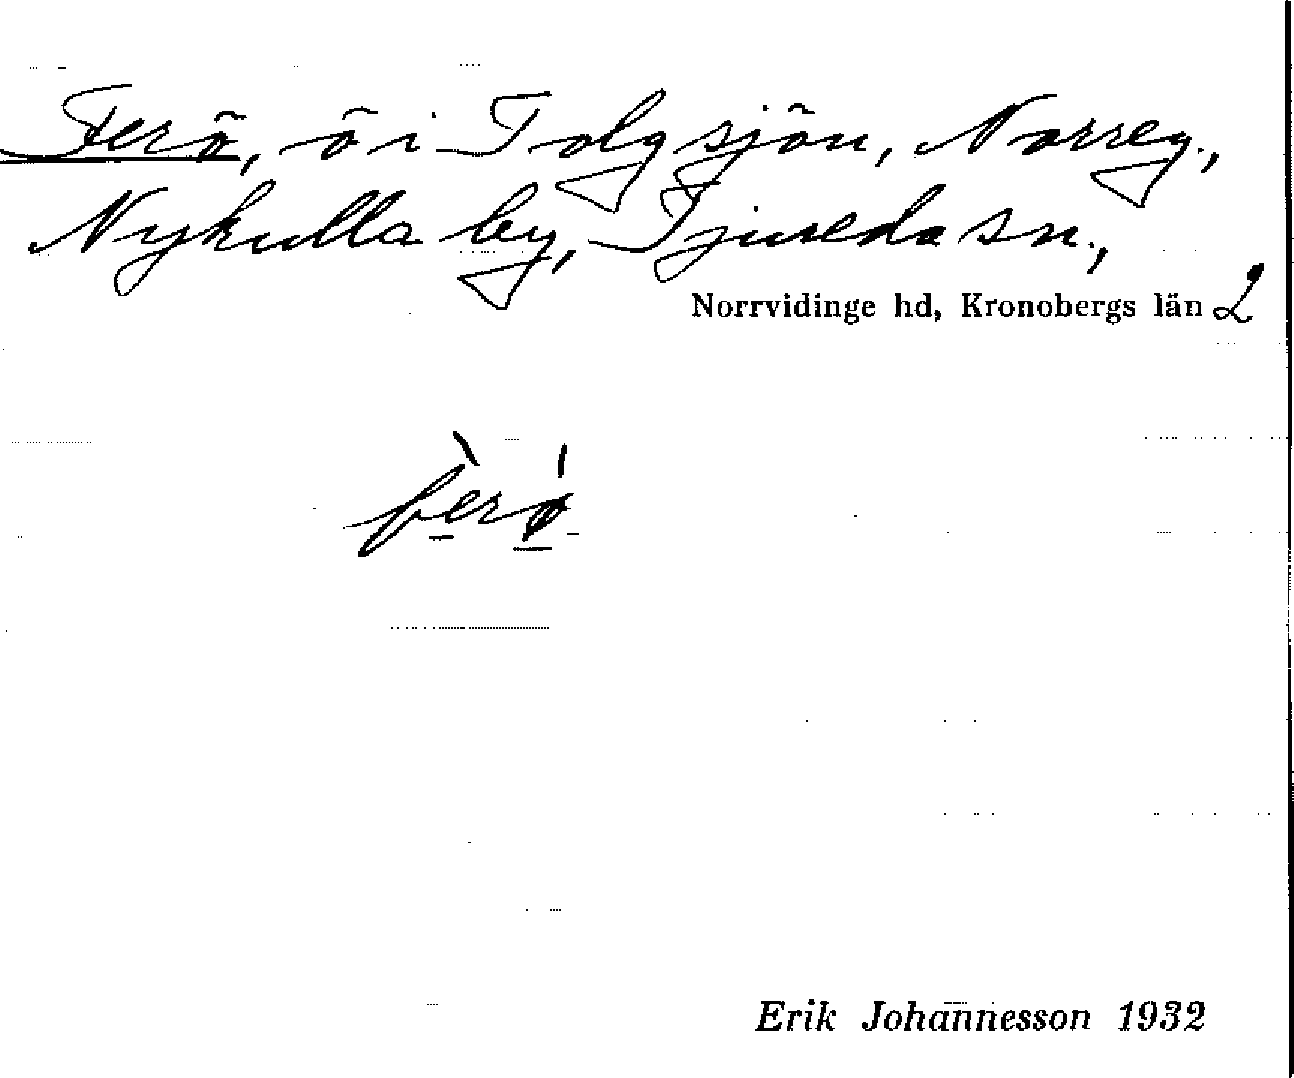 Ferö, ö i Tolgsjön, Norreg.,
Nykulla by, Tjureda sn.,
Norrvidinge hd, Kronobergs län 2
fèrǿ
Erik Johannesson 1932